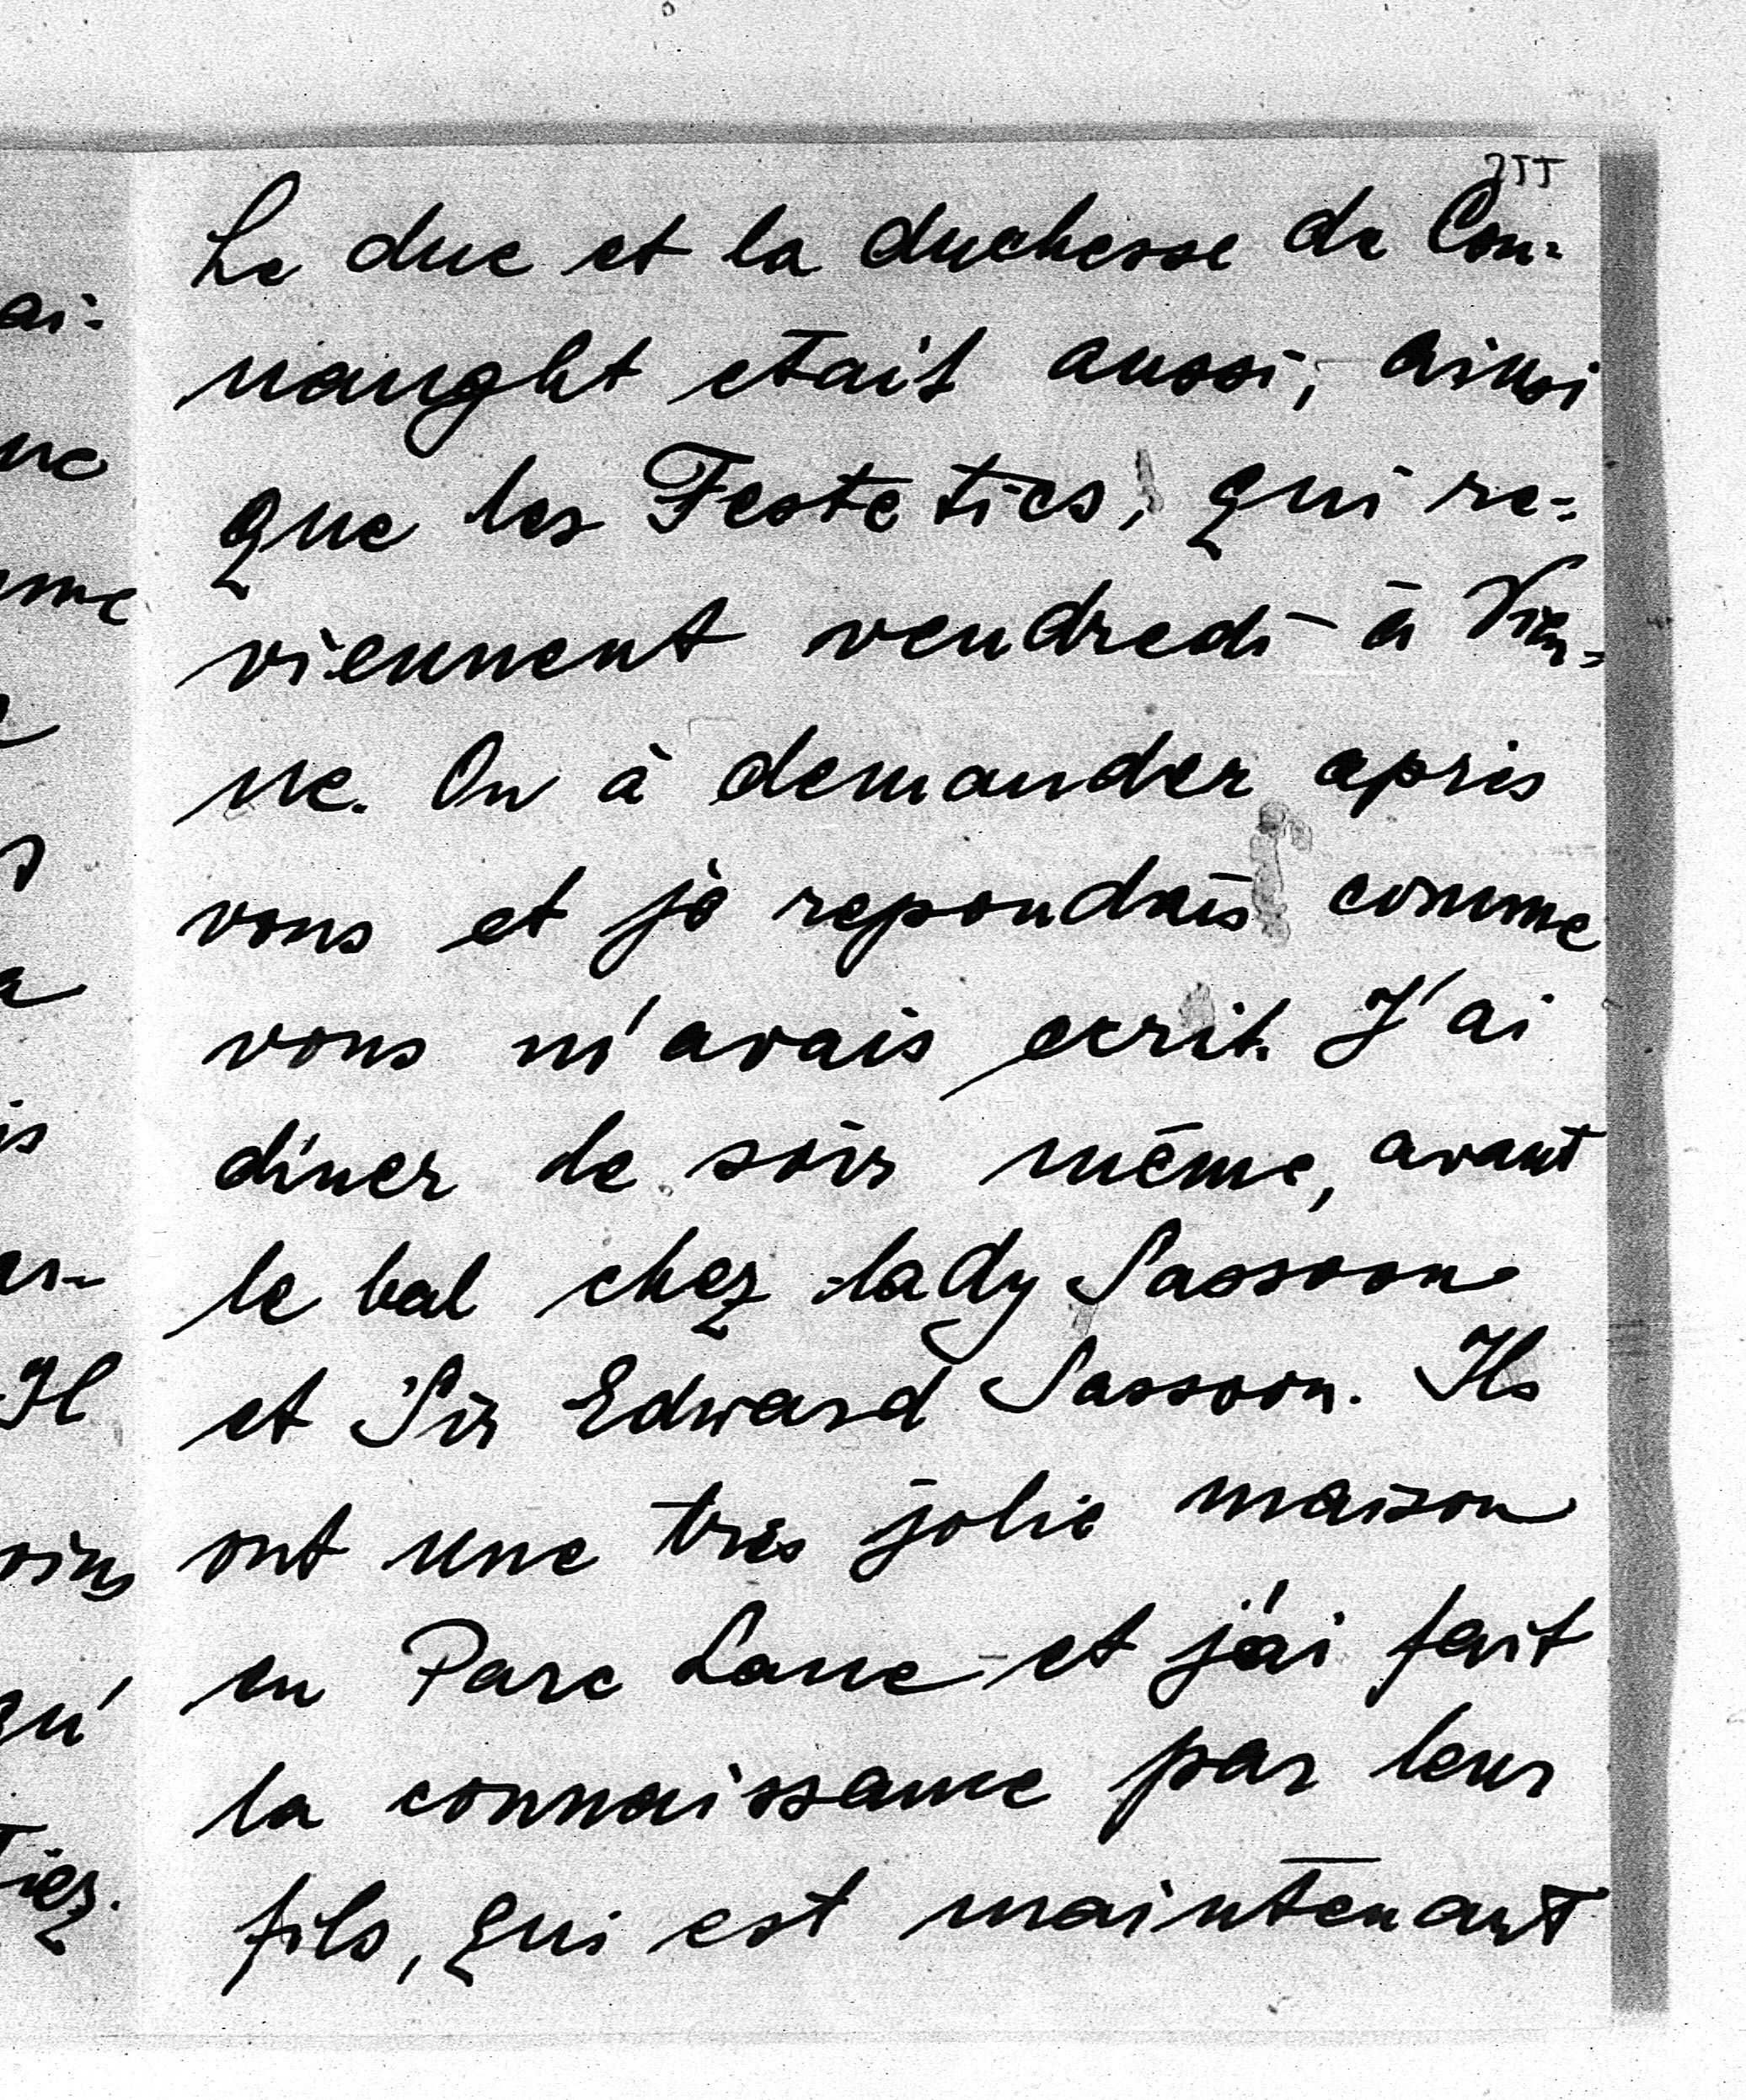 Le duc et la duchesse de Con-
naught etait aussi, ainsi
que les Festetics, qui re-
viennent vendredi à Vien-
ne. On à demander apris
vous et je repondais comme
vous m'avais ecrit. J'ai
diner le soir même, avant
le bal chez lady Sassoon
et Sir Edward Sassoon. Ils
ont une très jolie maison
en Parc Lane et j'ai fait
la connaissance par leur
fils, qui est maintenant